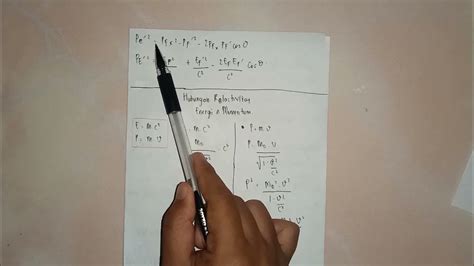 Pe'² = Pfx² - Pf'² - 2Pfx Pf' cos θ
Pe'² = + Ef'²/c² - 2Ef Ef'/c² cos θ
Hubungan Relativitas
Energi n Momentum
E = m c²
P = m v
m₀ . c²
• P = m v
P = m₀ v / √1 - v²/c²
P² = m₀² . v² / 1 - v²/c²